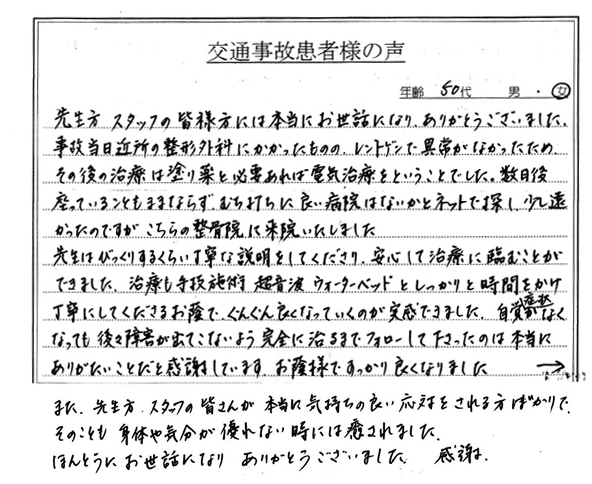 交通事故患者様の声
年齢 50代 男・女
先生方 スタッフの皆様方には本当にお世話になり、ありがとうございました。
事故当日近所の整形外科にかかったものの、レントゲンで異常がなかったため
その後の治療は塗り薬と必要あれば電気治療をということでした。数日後
座っていることもままならず、むち打ちに良い病院はないかとネットで探し、少し遠
かったのですが こちらの整骨院に来院いたしました
先生はびっくりするくらい丁寧な説明をしてくださり、安心して治療に臨むことが
できました。治療も手技施術 超音波 ウォーターベッドとしっかりと時間をかけ
丁寧にしてくださるお蔭で、ぐんぐん良くなっていくのが実感できました。自覚症状がなく
なっても 後々障害が出てこないよう完全に治るまでフォローして下さったのは本当に
ありがたいことだと感謝しています お蔭様ですっかり良くなりました →
また、先生方、スタッフの皆さんが本当に気持ちの良い応対をされる方ばかりで、
そのことも身体や気分が優れない時には癒されました。
ほんとうにお世話になり ありがとうございました 感謝。